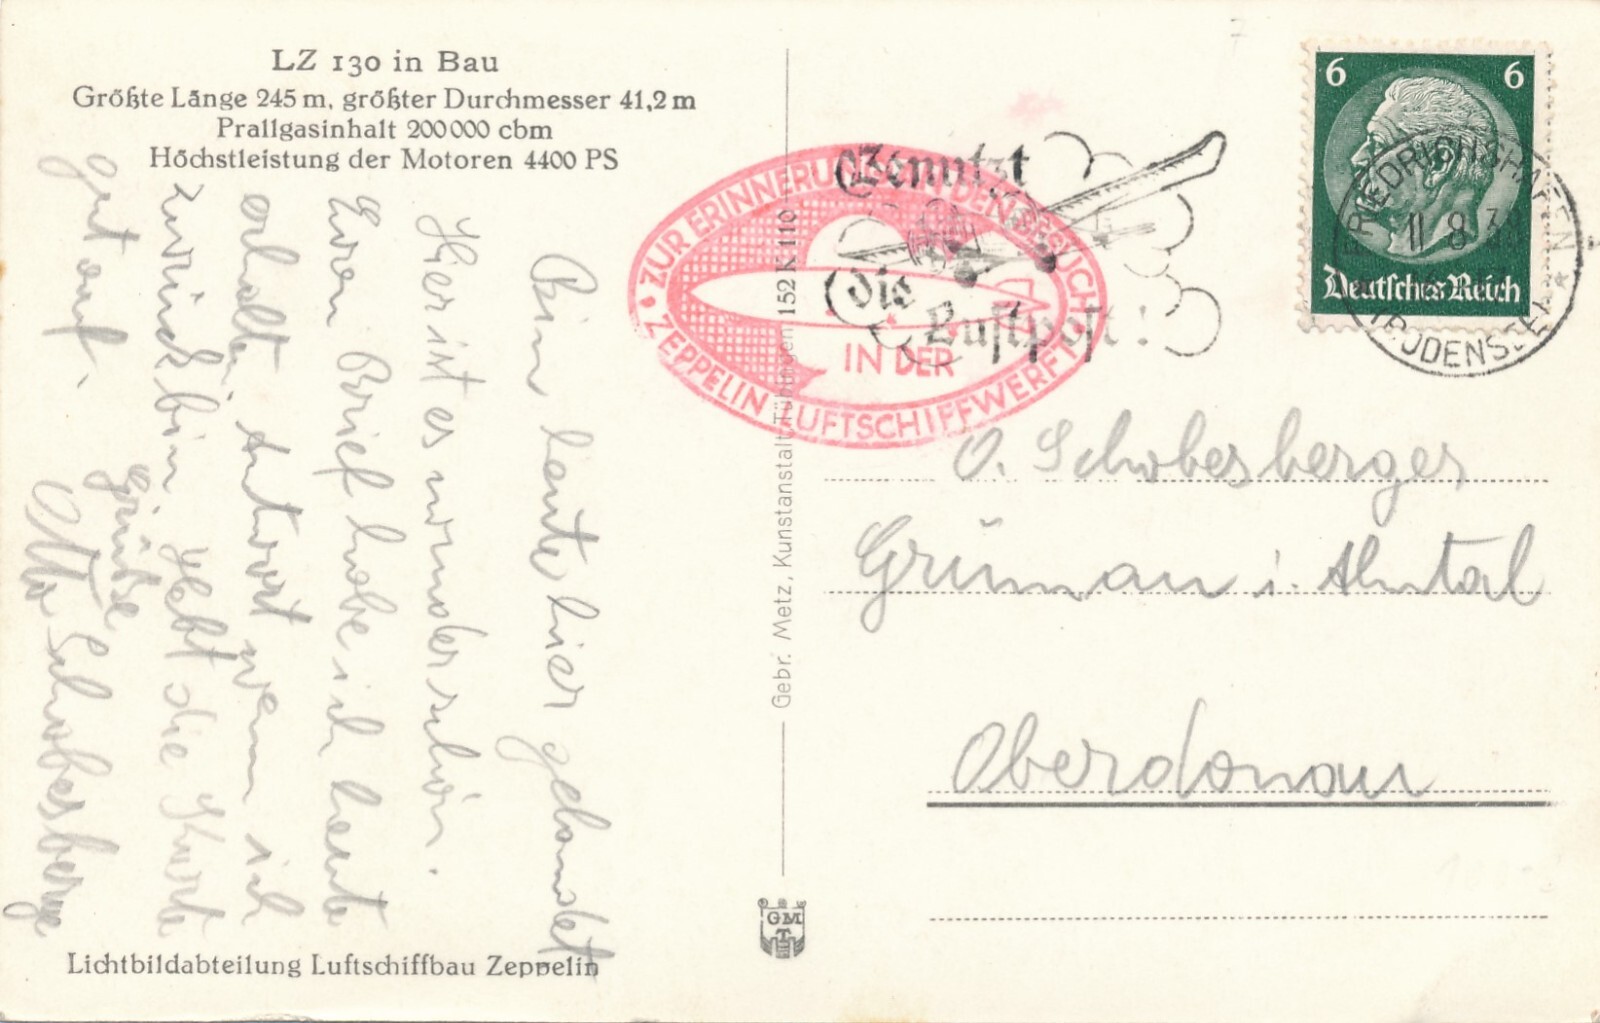 LZ 130 in Bau
Größte Länge 245 m, größter Durchmesser 41,2 m
Prallgasinhalt 200000 cbm
Höchstleistung der Motoren 4400 PS
Bin heute hier gelandet
Hier ist es wunderschön.
Euren Brief habe ich heute
erhalten Antwort wenn ich
zurück bin hebt die Karte
gut auf.
Grüße
Otto Schobesberger
Lichtbildabteilung Luftschiffbau Zeppelin
Gebr. Metz, Kunstanstalt, Tübingen 152 K 110
GMT
ZUR ERINNERUNG AN DEN BESUCH
IN DER
ZEPPELIN-LUFTSCHIFFWERFT
Benutzt
Die
Luftpost!
6 6
Deutsches Reich
FRIEDRICHSHAFEN
11 8
(BODENSEE)
O. Schobesberger
Grünau i. Almtal
Oberdonau